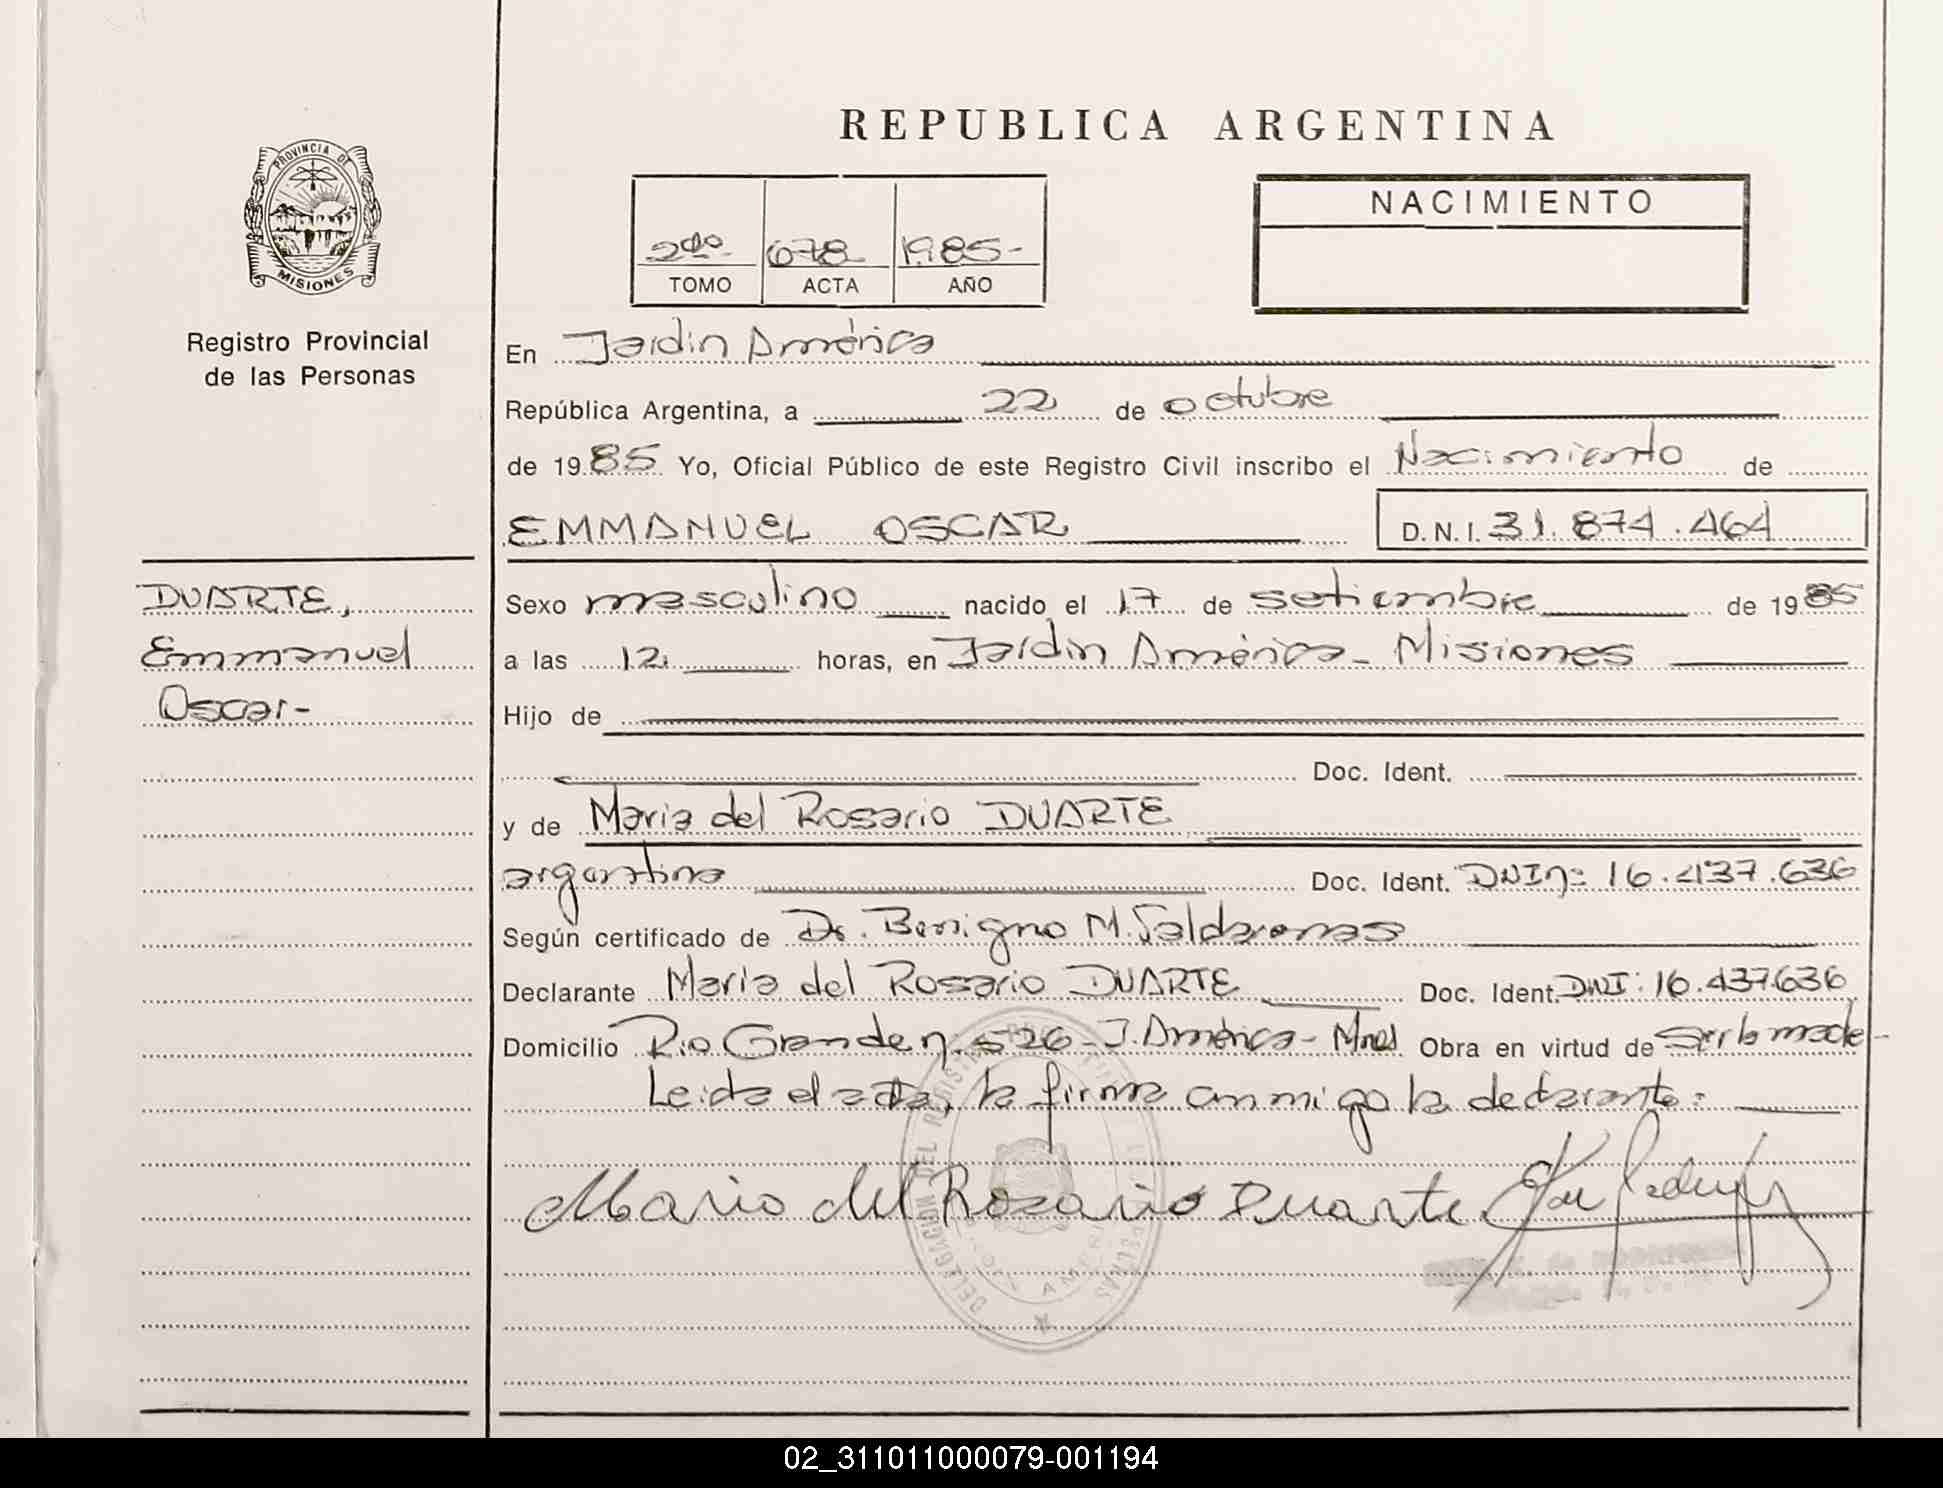 REPUBLICA ARGENTINA
PROVINCIA DE
MISIONES
Registro Provincial
de las Personas
2do 678 1985-
TOMO ACTA AÑO
NACIMIENTO
En Jardin América
República Argentina, a 22 de octubre
de 1985 Yo, Oficial Público de este Registro Civil inscribo el Nacimiento de
EMMANUEL OSCAR D.N.I. 31.874.464
DUARTE,
Emmanuel
Oscar-
Sexo masculino nacido el 17 de setiembre de 1985
a las 12 horas, en Jardin América- Misiones
Hijo de
Doc. Ident.
y de Maria del Rosario DUARTE
argentina Doc. Ident. DNI n: 16.437.636
Según certificado de Dr. Benigno M. Saldarenas
Declarante Maria del Rosario DUARTE Doc. Ident. DNI: 16.437636
Domicilio Rio Grande n. 526- J. América- Mnes Obra en virtud de ser la madre-
Leida el acta, la firma conmigo la declarante:
Maria del Rosario Duarte
DELEGACION DEL REGISTRO
AMERICA
02_311011000079-001194